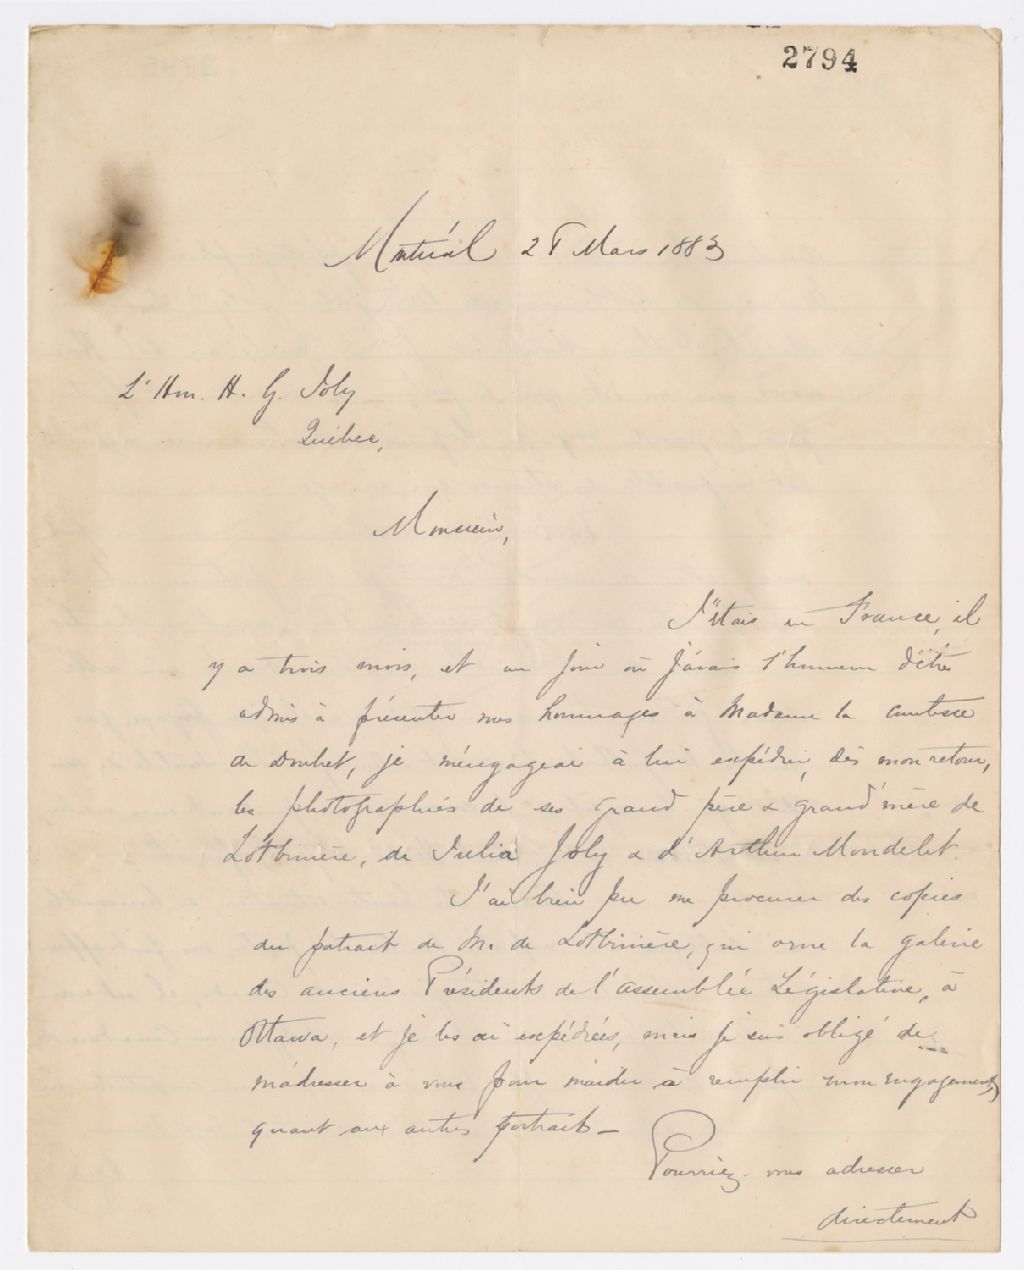 2794
Montréal 28 Mars 1883
L'Hon. H. G. Joly
Québec,
Monsieur,
J'étais en France, il
y a trois mois, et un jour où j'avais l'honneur d'être
admis à présenter mes hommages à Madame la comtesse
de Douhet, je m'engageai à lui expédier, dès mon retour,
les photographies de ses grand père & grand'mère de
Lotbinière, de Julia Joly & d'Arthur Mondelet.
J'ai bien pu me procurer des copies
du portrait de M. de Lotbinière, qui orne la galerie
des anciens Présidents de l'assemblée Législative, à
Ottawa, et je les ai expédiées, mais je suis obligé de
m'adresser à vous pour m'aider à remplir mon engagement,
quant aux autres portraits—
Pourriez-vous adresser
directement